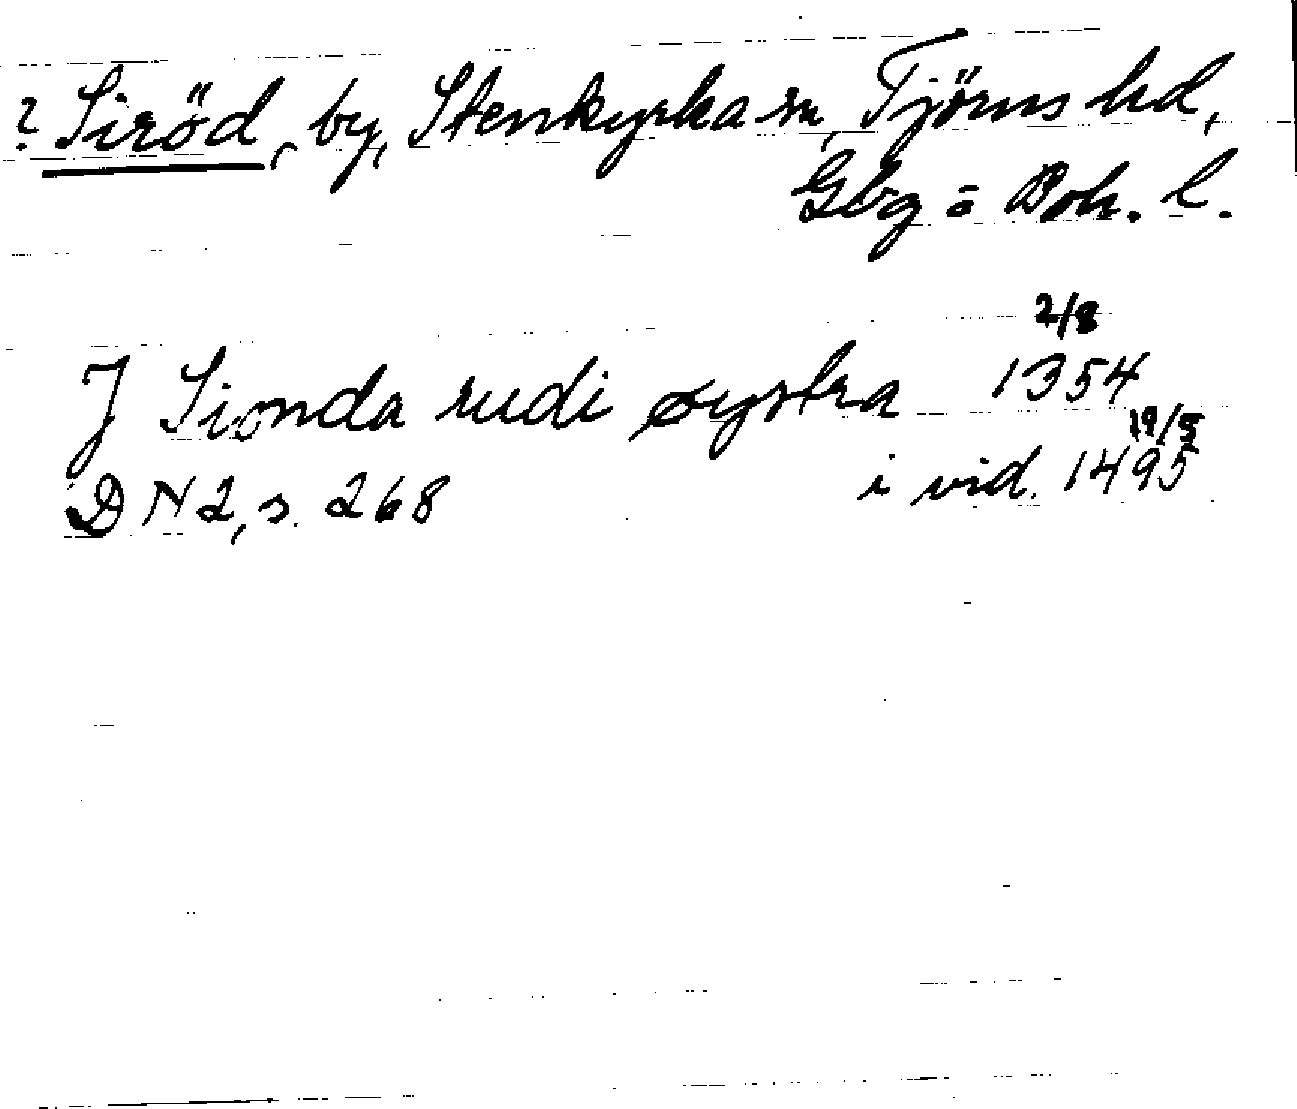 ? Siröd, by, Stenkyrka sn, Tjörns hd,
Gbg = Boh. l.
J Sionda rudi øystra 1354 2/8
DN 2, s. 268 i vid. 1495 19/5